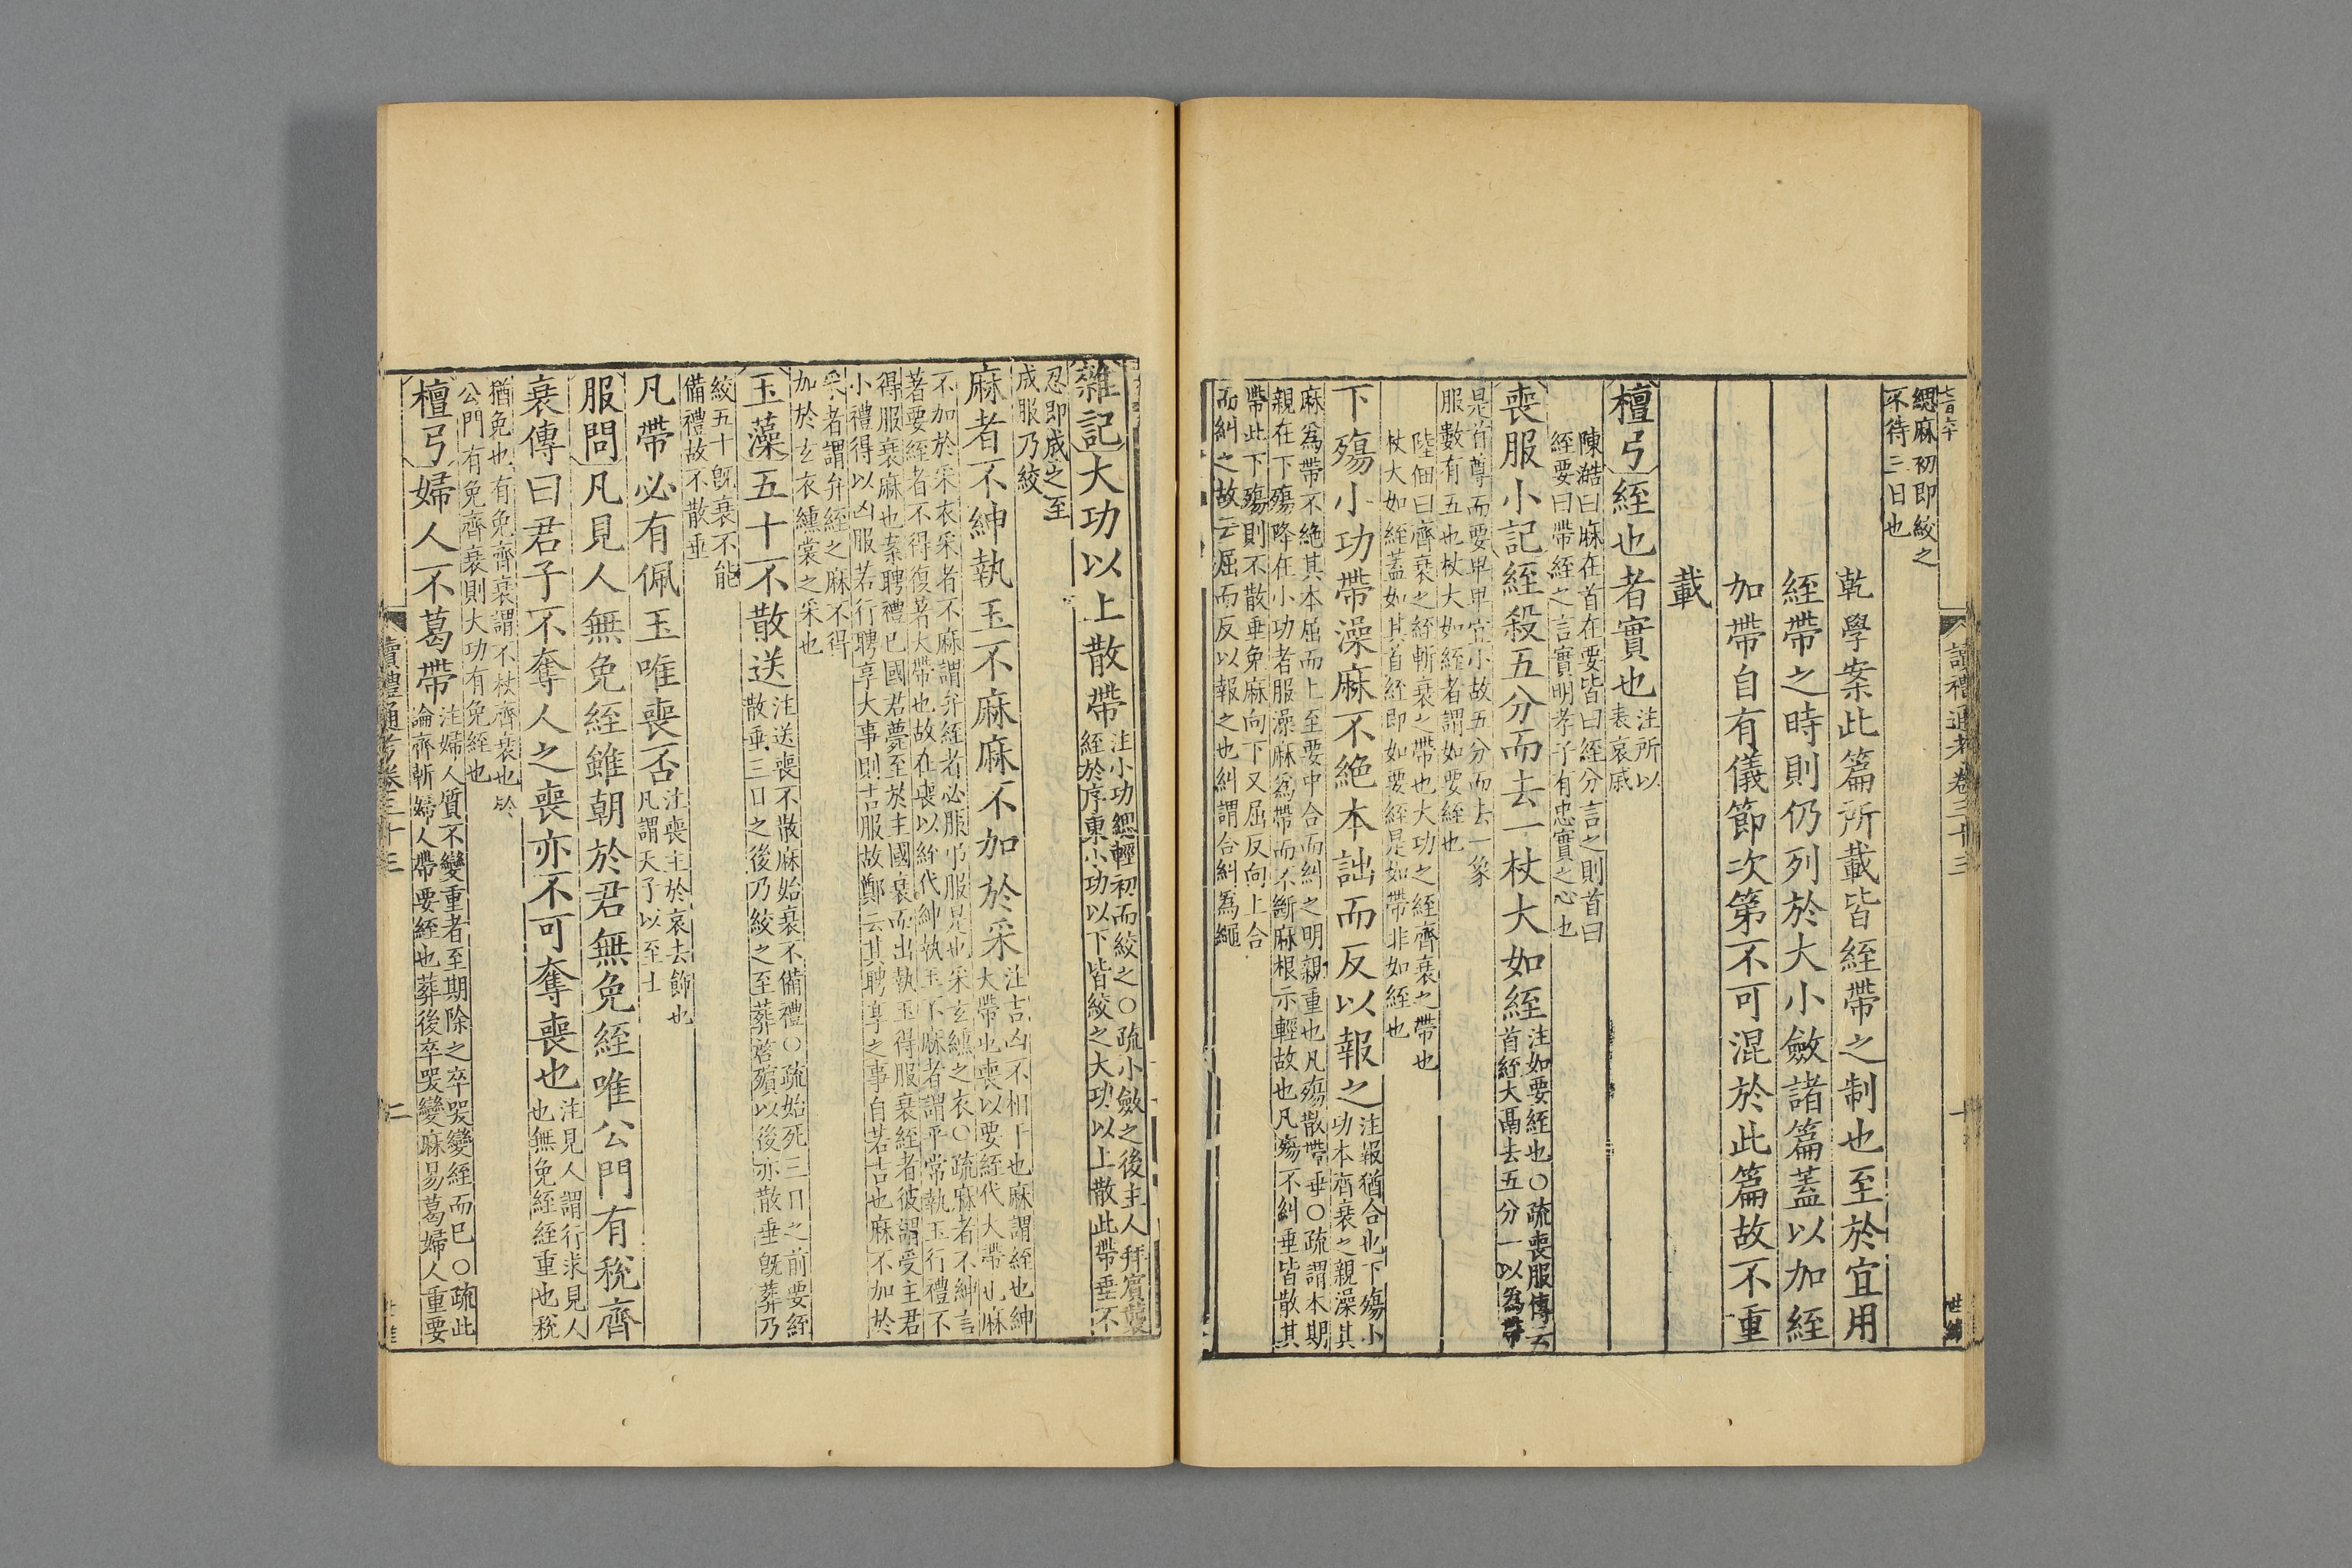 讀禮通考卷三十三
緦麻初即絞之
不待三日也
乾學案此篇所載皆絰帶之制也至於宜用
絰帶之時則仍列於大小斂諸篇蓋以加絰
加帶自有儀節次第不可混於此篇故不重
載
檀弓絰也者實也注所以
表哀戚
陳澔曰麻在首在要皆曰絰分言之則首曰
絰要曰帶絰之言實明孝子有忠實之心也
喪服小記絰殺五分而去一杖大如絰注如要絰也○疏喪服傳云
首絰大鬲去五分一以為帶
是首尊而要卑卑宜小故五分而去一象
服數有五也杖大如絰者謂如要絰也
陸佃曰齊衰之絰斬衰之帶也大功之絰齊衰之帶也
杖大如絰蓋如其首絰即如要絰是如帶非如絰也
下殤小功帶澡麻不絶本詘而反以報之注報猶合也下殤小
功本齊衰之親澡其
麻為帶不絶其本屈而上至要中合而糾之明親重也凡殤散帶垂○疏謂本期
親在下殤降在小功者服澡麻為帶而不斷麻根示輕故也凡殤不糾垂皆散其
帶此下殤則不散垂免麻向下又屈反向上合
而糾之故云屈而反以報之也糾謂合糾為繩
雜記大功以上散帶注小功緦輕初而絞之○疏小斂之後主人拜賓襲
絰於序東小功以下皆絞之大功以上散此帶垂不
忍即成之至
成服乃絞
麻者不紳執玉不麻麻不加於采注吉凶不相干也麻謂絰也紳
大帶也喪以要絰代大帶也麻
不加於采衣采者不麻謂弁絰者必服弔服是也采玄纁之衣○疏麻者不紳言
著要絰者不得復著大帶也故在喪以絰代紳執玉不麻者謂平常執玉行禮不
得服衰麻也案聘禮已國君薨至於主國衰而出執玉得服衰絰者彼謂受主君
小禮得以凶服若行聘享大事則吉服故鄭云其聘享之事自若吉也麻不加於
采者謂弁絰之麻不得
加於玄衣纁裳之采也
玉藻五十不散送注送喪不散麻始衰不備禮○疏始死三日之前要絰
散垂三日之後乃絞之至葬啓殯以後亦散垂旣葬乃
絞五十旣衰不能
備禮故不散垂
凡帶必有佩玉唯喪否注喪主於哀去飾也
凡謂天子以至士
服問凡見人無免絰雖朝於君無免絰唯公門有稅齊
衰傳曰君子不奪人之喪亦不可奪喪也注見人謂行求見人
也無免絰絰重也稅
猶免也有免齊衰謂不杖齊衰也於
公門有免齊衰則大功有免絰也
檀弓婦人不葛帶注婦人質不變重者至期除之卒哭變絰而已○疏此
論齊斬婦人帶要絰也葬後卒哭變麻易葛婦人重要
讀禮通考卷三十三
二